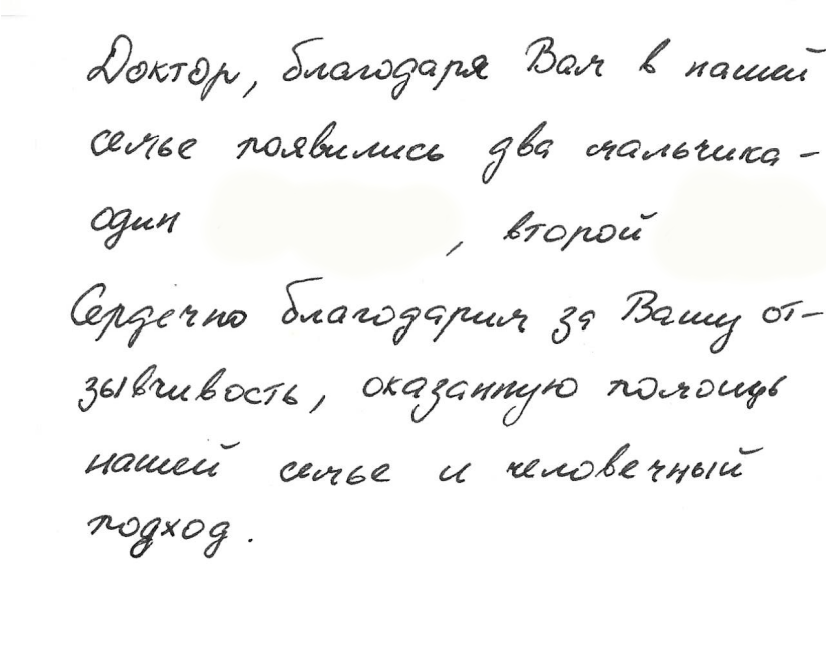 Доктор, благодаря Вам в нашей
семье появились два мальчика -
один , второй
Сердечно благодарим за Вашу от-
зывчивость, оказанную помощь
нашей семье и человечный
подход.